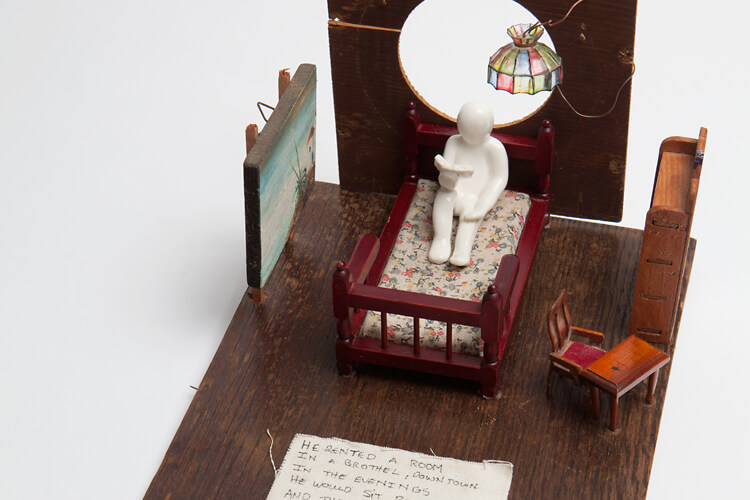 HE RENTED A ROOM
IN A BROTHEL, DOWNTOWN
IN THE EVENINGS
HE WOULD SIT
AND